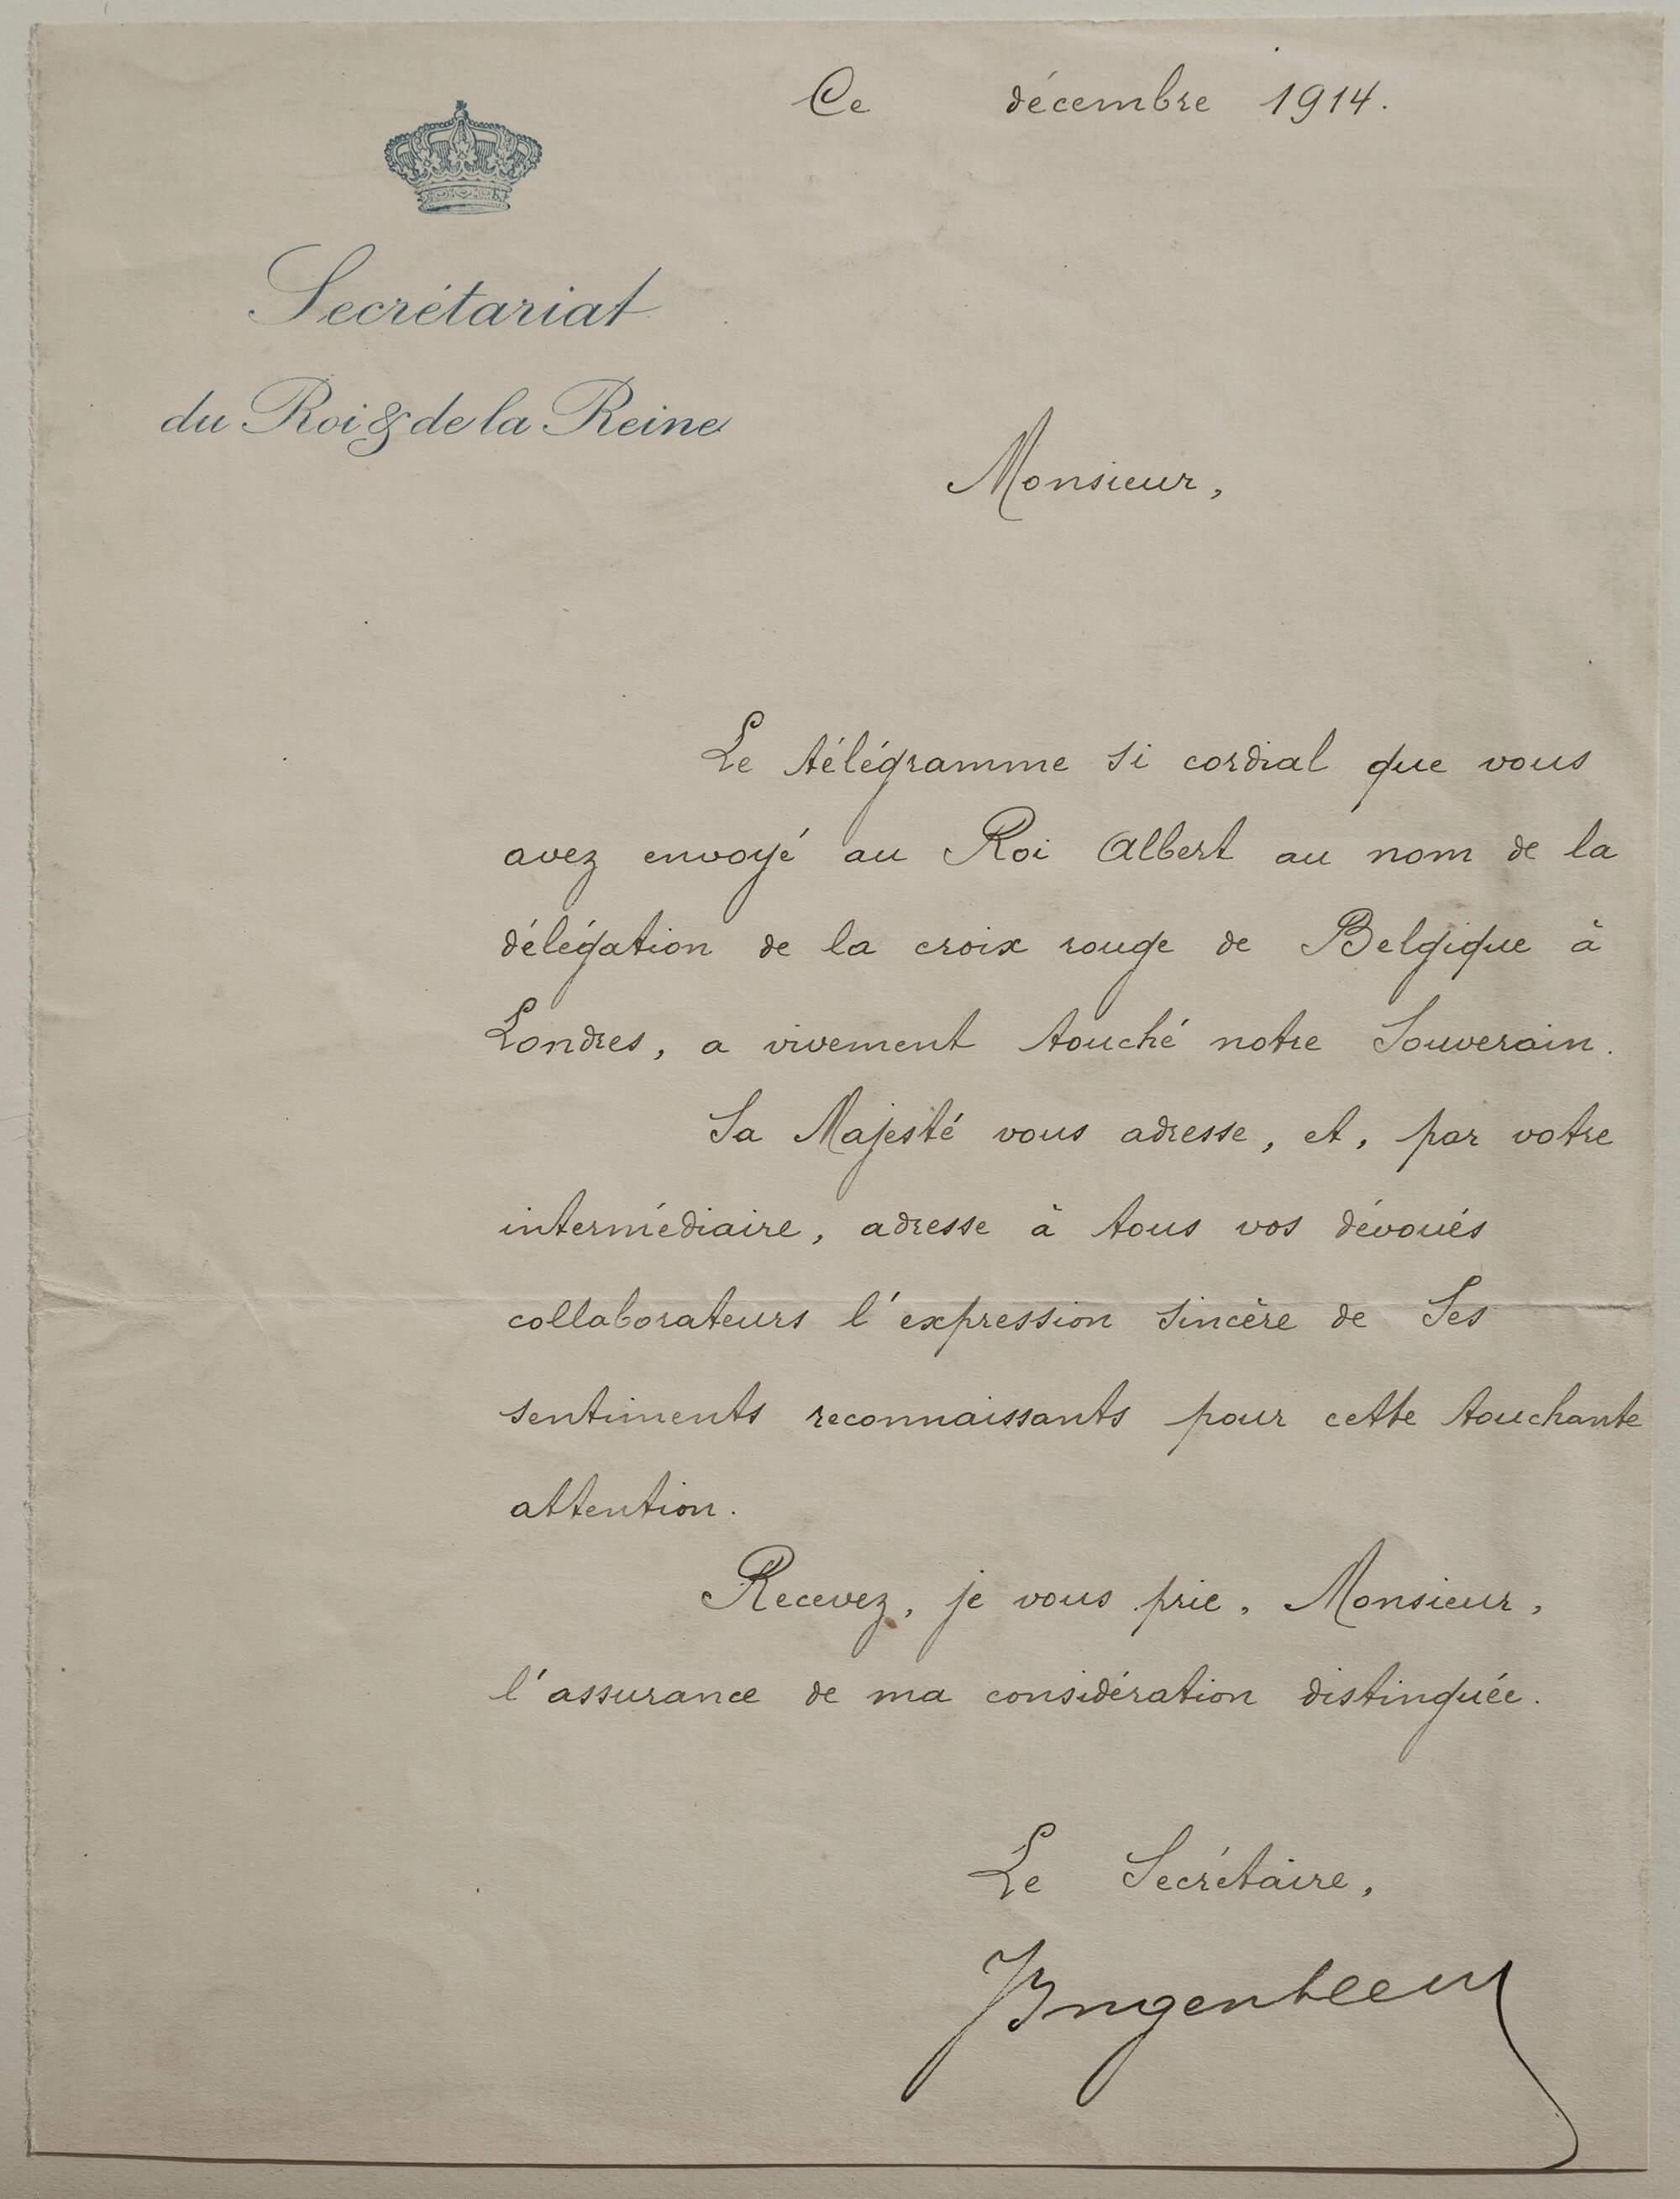 Ce décembre 1914.
Secrétariat
du Roi & de la Reine
Monsieur,
Le télégramme si cordial que vous
avez envoyé au Roi Albert au nom de la
délégation de la croix rouge de Belgique à
Londres, a vivement touché notre Souverain.
Sa Majesté vous adresse, et, par votre
intermédiaire, adresse à tous vos dévoués
collaborateurs l'expression sincère de Ses
sentiments reconnaissants pour cette touchante
attention.
Recevez, je vous prie, Monsieur,
l'assurance de ma considération distinguée.
Le Secrétaire,